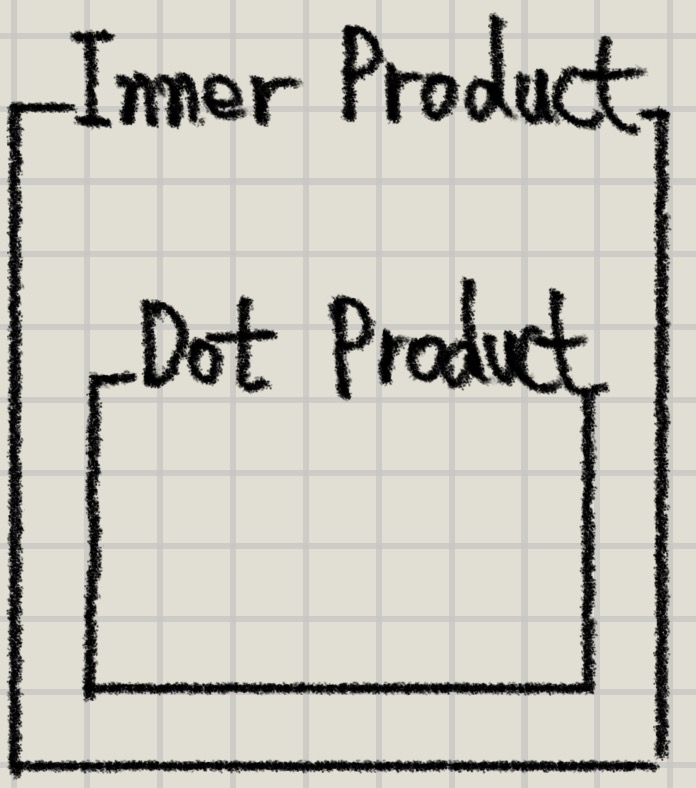 Inner Product
Dot Product